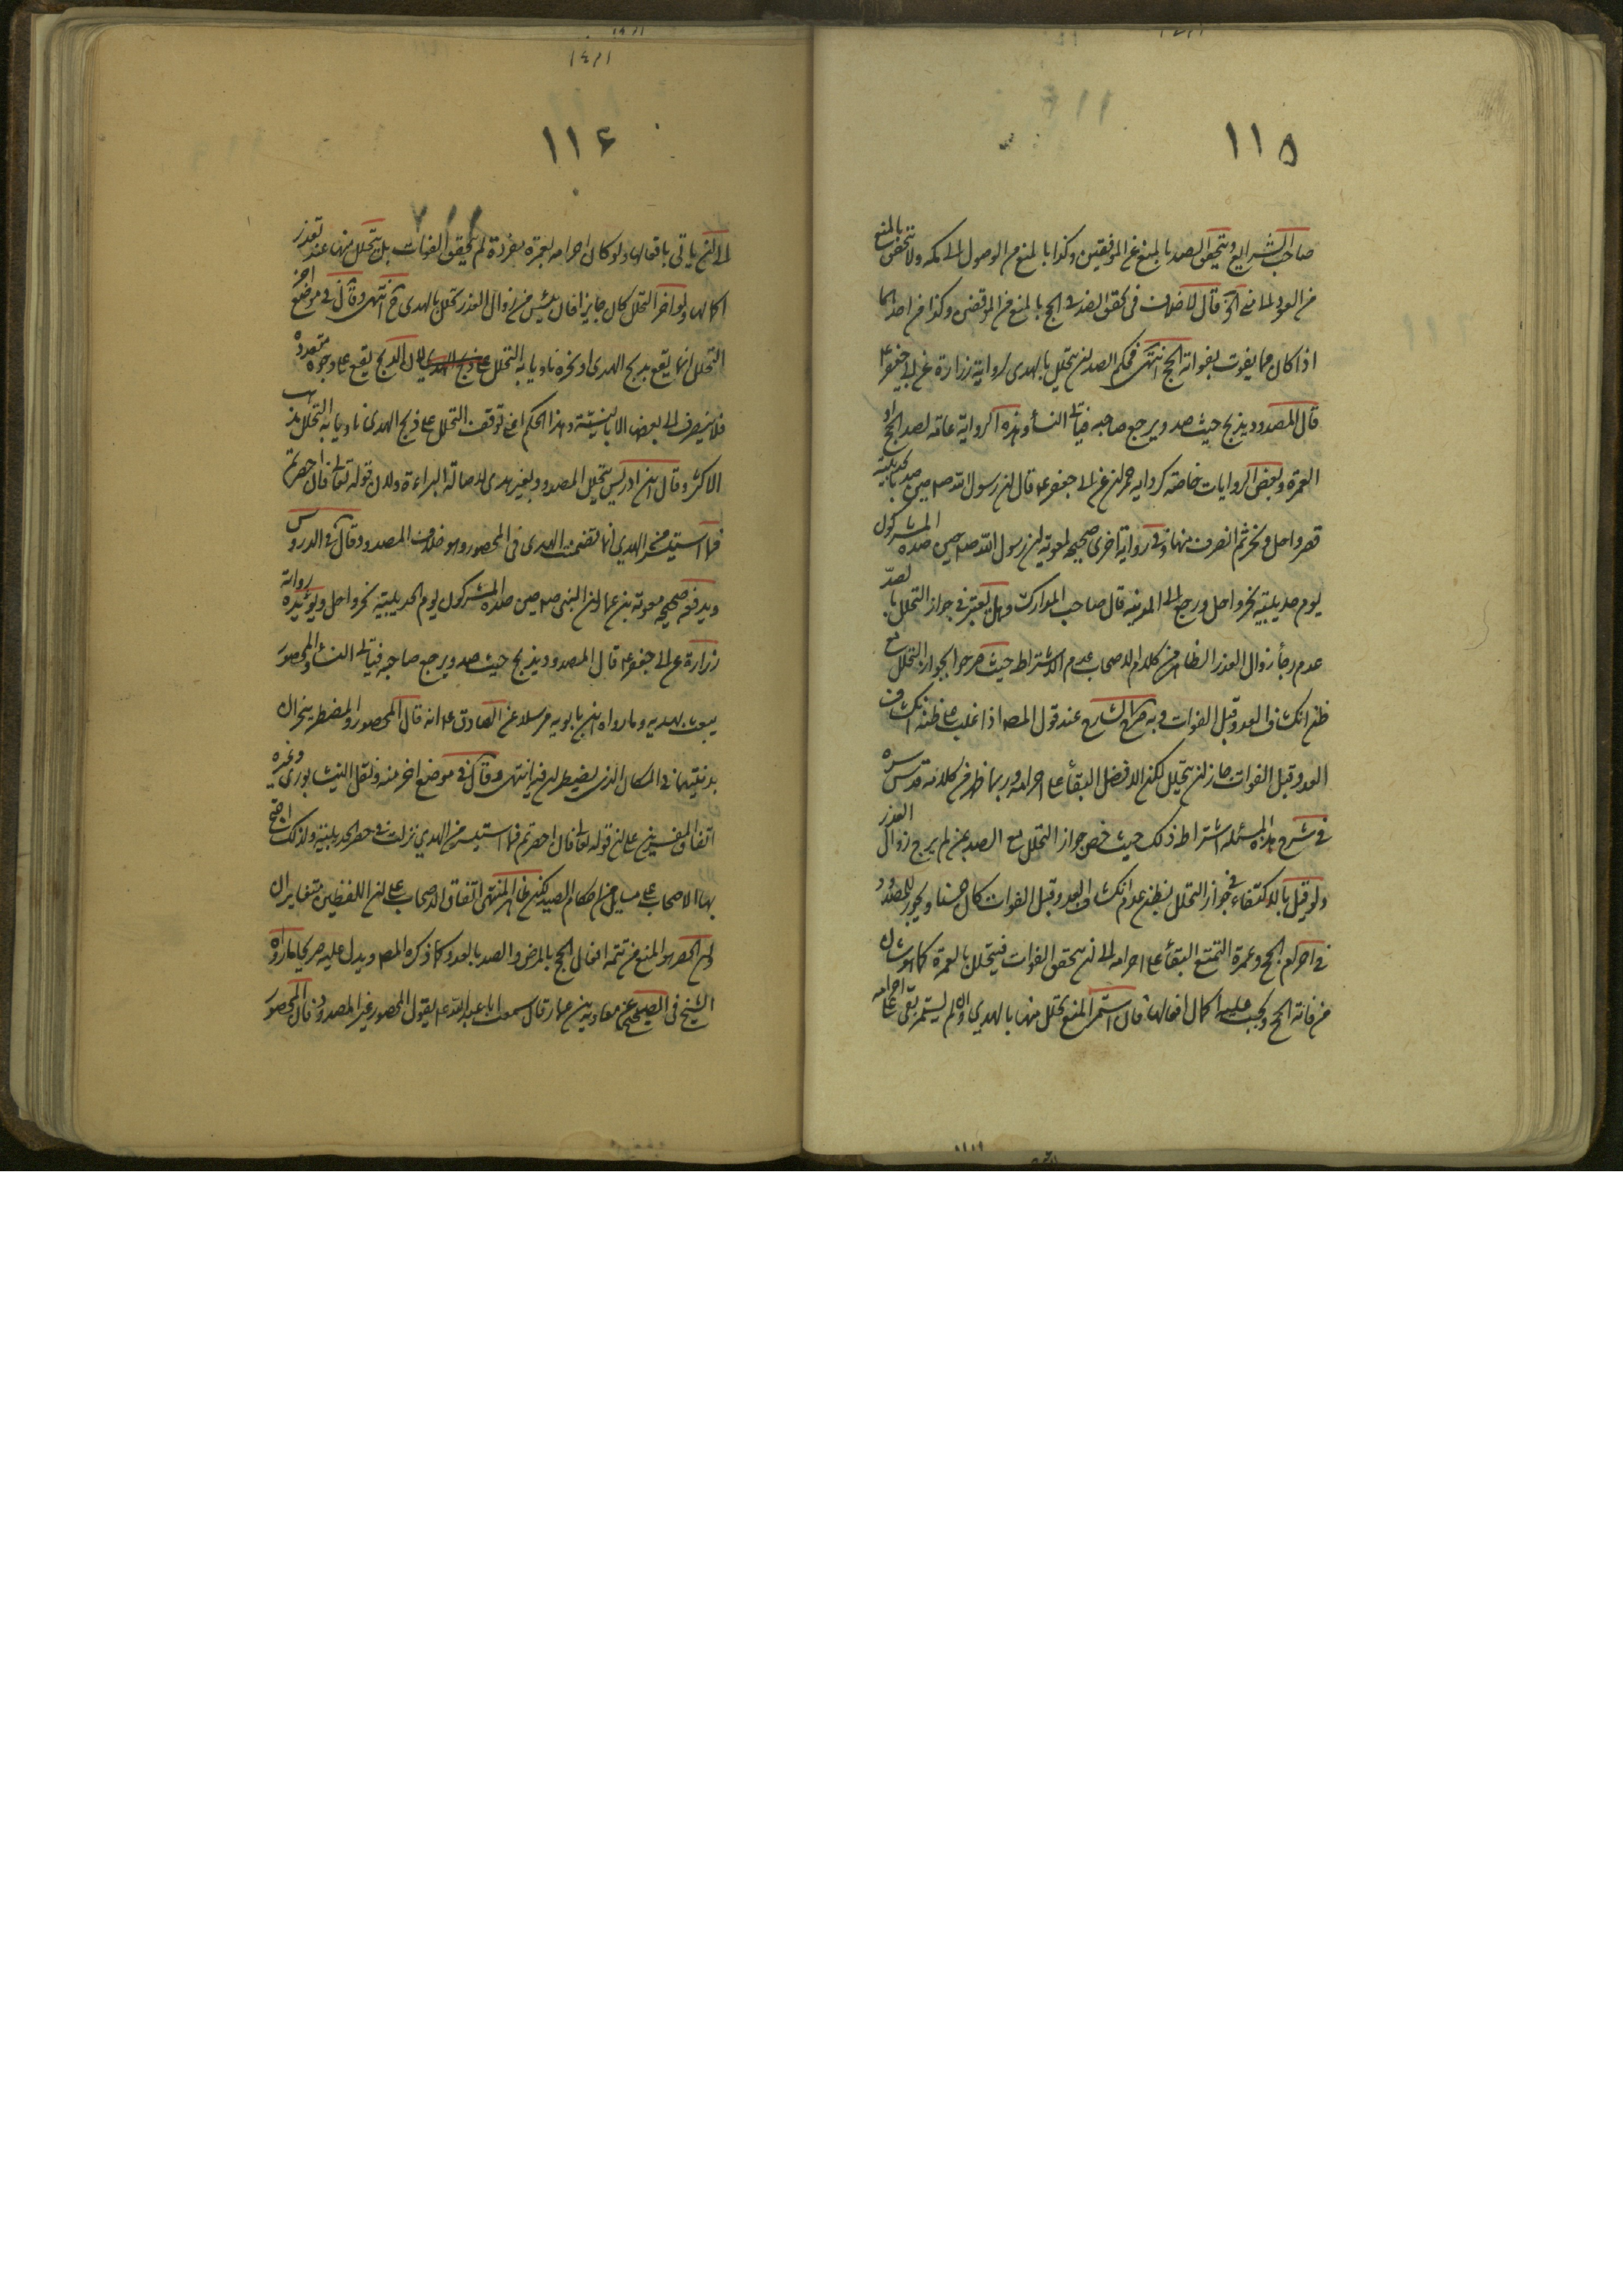 ١١٥
صاحب الشرايع ويتحقق الصد بالمنع عن الموقفين وكذا بالمنع من الوصول الى مكة ولا يتحقق بالمنع
من العود الى منى الخ قال لا خلاف في تحقق الصد في الحج بالمنع من الموقفين وكذا من احدهما
اذا كان مما يفوت بفواته الحج انتهى فحكم الصد ان يتحلل بالهدى لرواية زرارة عن ابي جعفر ع
قال المصدود يذبح حيث صد ويرجع صاحبه فياتي النسأ وهذه الرواية عامة لصد الحج او
العمرة وبعض الروايات خاصة كرواية حمران عن ابي جعفر ع قال ان رسول الله ص حين صد بالحديبية
قصر واحل ونحر ثم انصرف منها وفي رواية اخرى صحيحة لمعوية ان رسول الله ص حين صده المشركون
يوم حديبية نحر واحل ورجع الى المدينة قال صاحب المدارك وهل يعتبر في جواز التحلل بالصد
عدم رجأ زوال العذر الظاهر من كلام الاصحاب عدم الاشتراط حيث صرحوا بجواز التحلل مع
ظن انكشاف العدو قبل الفوات وبه صرح الشارح عند قول المص اذا غلب على ظنه انكشاف
العدو قبل الفوات جاز ان يتحلل لكن الافضل البقأ على احرامه وربما ظهر من كلامه قدس سره
في شرح هذه المسئلة اشتراط ذلك حيث خص جواز التحلل مع الصد بمن لم يرج زوال العذر
ولو قيل بالاكتفاء في جواز التحلل بظن عدم انكشاف العدو قبل الفوات كان حسنا ويجوز للمصدود
في احرام الحج وعمرة التمتع البقأ على احرامه الى ان يتحقق الفوات فيتحلل بالعمرة كما هو شان
من فاته الحج ويجب عليه اكمال افعالها فان استمر المنع تحلل منها بالهدى والا لم يستمر بقى على احرامه
١١۶
الى ان ياتى بافعالها ولو كان احرامه بعمرة مفردة لم يتحقق الفوات بل يتحلل منها عند تعذر
اكمالها ولو اخر التحلل كان جايزا فان يئس من زوال العذر تحلل بالهدى ح انتهى وقال في موضع اخر
التحلل انما يقع بذبح الهدى او نحره ناويا به التحلل لان الذبح يقع على وجوه متعددة
فلا ينصرف الى بعض الا بالنية وهذا الحكم اعنى توقف التحلل على ذبح الهدى ناويا به التحلل مذهب
الاكثر وقال ابن ادريس يتحلل المصدود بغير هدى لاصالة البراءة ولان قوله تعالى فان احصرتم
فما استيسر من الهدي انما تضمنت الهدى في المحصور وهو خلاف المصدود وقال في الدروس
ويدفعه صحيحه معوية بن عمار ان النبى ص حين صده المشركون يوم الحديبية نحر واحل ويؤيده رواية
زرارة عن ابي جعفر ع قال المصدود يذبح حيث صد ويرجع صاحبه فياتى النسأ والمحصور
يبعث بهديه وما رواه ابن بابويه مرسلا عن الصادق ع انه قال المحصور والمضطر ينحران
بدنتيهما في المكان الذى يضطران فيه انتهى وقال في موضع اخر منه ونقل النيشابورى وغيره
اتفاق المفسرين على ان قوله تعالى فان احصرتم فما استيسر من الهدي نزلت في حصر الحديبية ولذلك احتج
بها الاصحاب على مسايل من احكام الصد لكن ظاهر المنتهى اتفاق الاصحاب على ان اللفظين متغايران
وان الحصر هو المنع من تتمة افعال الحج بالمرض والصد بالعدو كما ذكره المص ويدل عليه صريحا ما رواه
الشيخ في الصحيح عن معاوية بن عمار قال سمعت ابا عبد الله ع يقول المحصور غير المصدود وقال المحصور